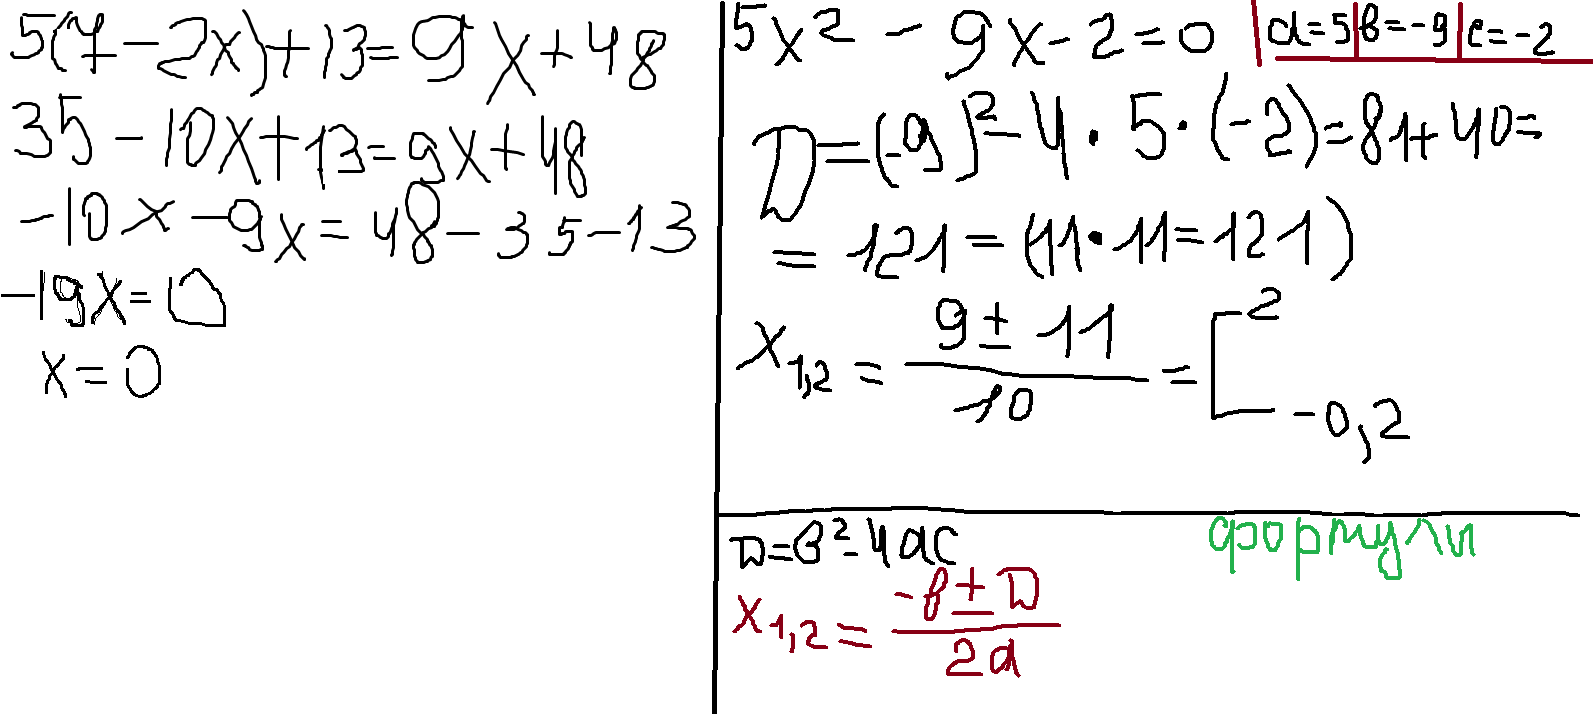 5(7-2x)+13=9x+48
35-10x+13=9x+48
-10x-9x=48-35-13
-19x=0
x=0
5x²-9x-2=0
a=5|в=-9|c=-2
D=(-9)²-4·5·(-2)=81+40=
=121=(11·11=121)
x₁,₂ = (9±11)/10 = [2
-0,2
D=в²-4ac
формули
x₁,₂ = (-в±D)/2a